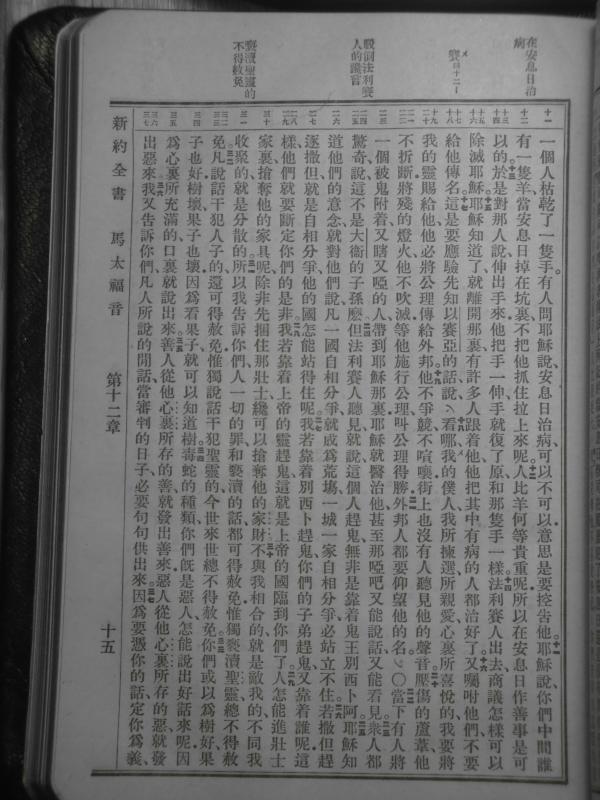 在安息日治
病
賽四十二
駁詞法利賽
人的
褻瀆聖靈的
不得赦免
一個人枯乾了一隻手、有人問耶穌說、安息日治病可以不可以、意思是要控告他、耶穌說、你們中間誰
有一隻羊、當安息日掉在坑裏、不把他抓住拉上來呢、人比羊何等貴重呢、所以在安息日作善事是可
以的、於是對那人說、伸出手來、他把手一伸、手就復了原、和那隻手一樣、法利賽人出去、商議怎樣可以
除滅耶穌、耶穌知道了、就離開那裏、有許多人跟着他、他把其中有病的人都治好了、又囑咐他們、不要
給他傳名、這是要應驗先知以賽亞的話、說、看哪、我的僕人、我所揀選、所親愛、心裏所喜悅的、我要將
我的靈賜給他、他必將公理傳給外邦、他不爭競、不喧嚷、街上也沒有人聽見他的聲音、壓傷的蘆葦、他
不折斷、將殘的燈火、他不吹滅、等他施行公理、叫公理得勝、外邦人都要仰望他的名、〇當下有人將
一個被鬼附着、又瞎又啞的人、帶到耶穌那裏、耶穌就醫治他、甚至那啞吧又能說話、又能看見、衆人都
驚奇、說、這不是大衞的子孫麽、但法利賽人聽見、就說、這個人趕鬼、無非是靠着鬼王別西卜阿、耶穌知
道他們的意念、就對他們說、凡一國自相分爭、就成爲荒場、一城一家自相分爭、必站立不住、若撒但趕
逐撒但、就是自相分爭、他的國怎能站得住呢、我若靠着別西卜趕鬼、你們的子弟趕鬼、又靠着誰呢、這
樣、他們就要斷定你們的是非、我若靠着上帝的靈趕鬼、這就是上帝的國臨到你們了、人怎能進壯士
家裏、搶奪他的家具呢、除非先捆住那壯士、纔可以搶奪他的家財、不與我相合的、就是敵我的、不同我
收聚的、就是分散的、所以我告訴你們、人一切的罪、和褻瀆的話、都可得赦免、惟獨褻瀆聖靈、總不得赦
免、凡說話干犯人子的、還可得赦免、惟獨說話干犯聖靈的、今世來世總不得赦免、你們或以爲樹好、果
子也好、樹壞、果子也壞、因爲看果子、就可以知道樹、毒蛇的種類、你們旣是惡人、怎能說出好話來呢、因
爲心裏所充滿的、口裏就說出來、善人從他心裏所存的善、就發出善來、惡人從他心裏所存的惡、就發
出惡來、我又告訴你們、凡人所說的閒話、當審判的日子、必要句句供出來、因爲要憑你的話、定你爲義、
新約全書 馬太福音 第十二章 十五